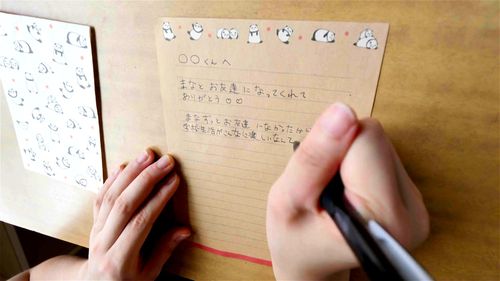 ○○くんへ
まなと お友達 に なってくれて
ありがとう ♡♡
まなずっと お友達 に なかったから
学校生活が こんなに 楽しいなんて